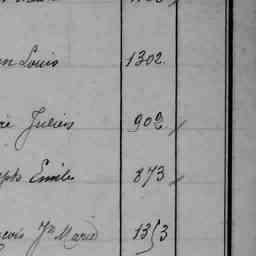 n Louis 1302.
Julien 902
ph Emile 873
ncois Jn Marie 1353